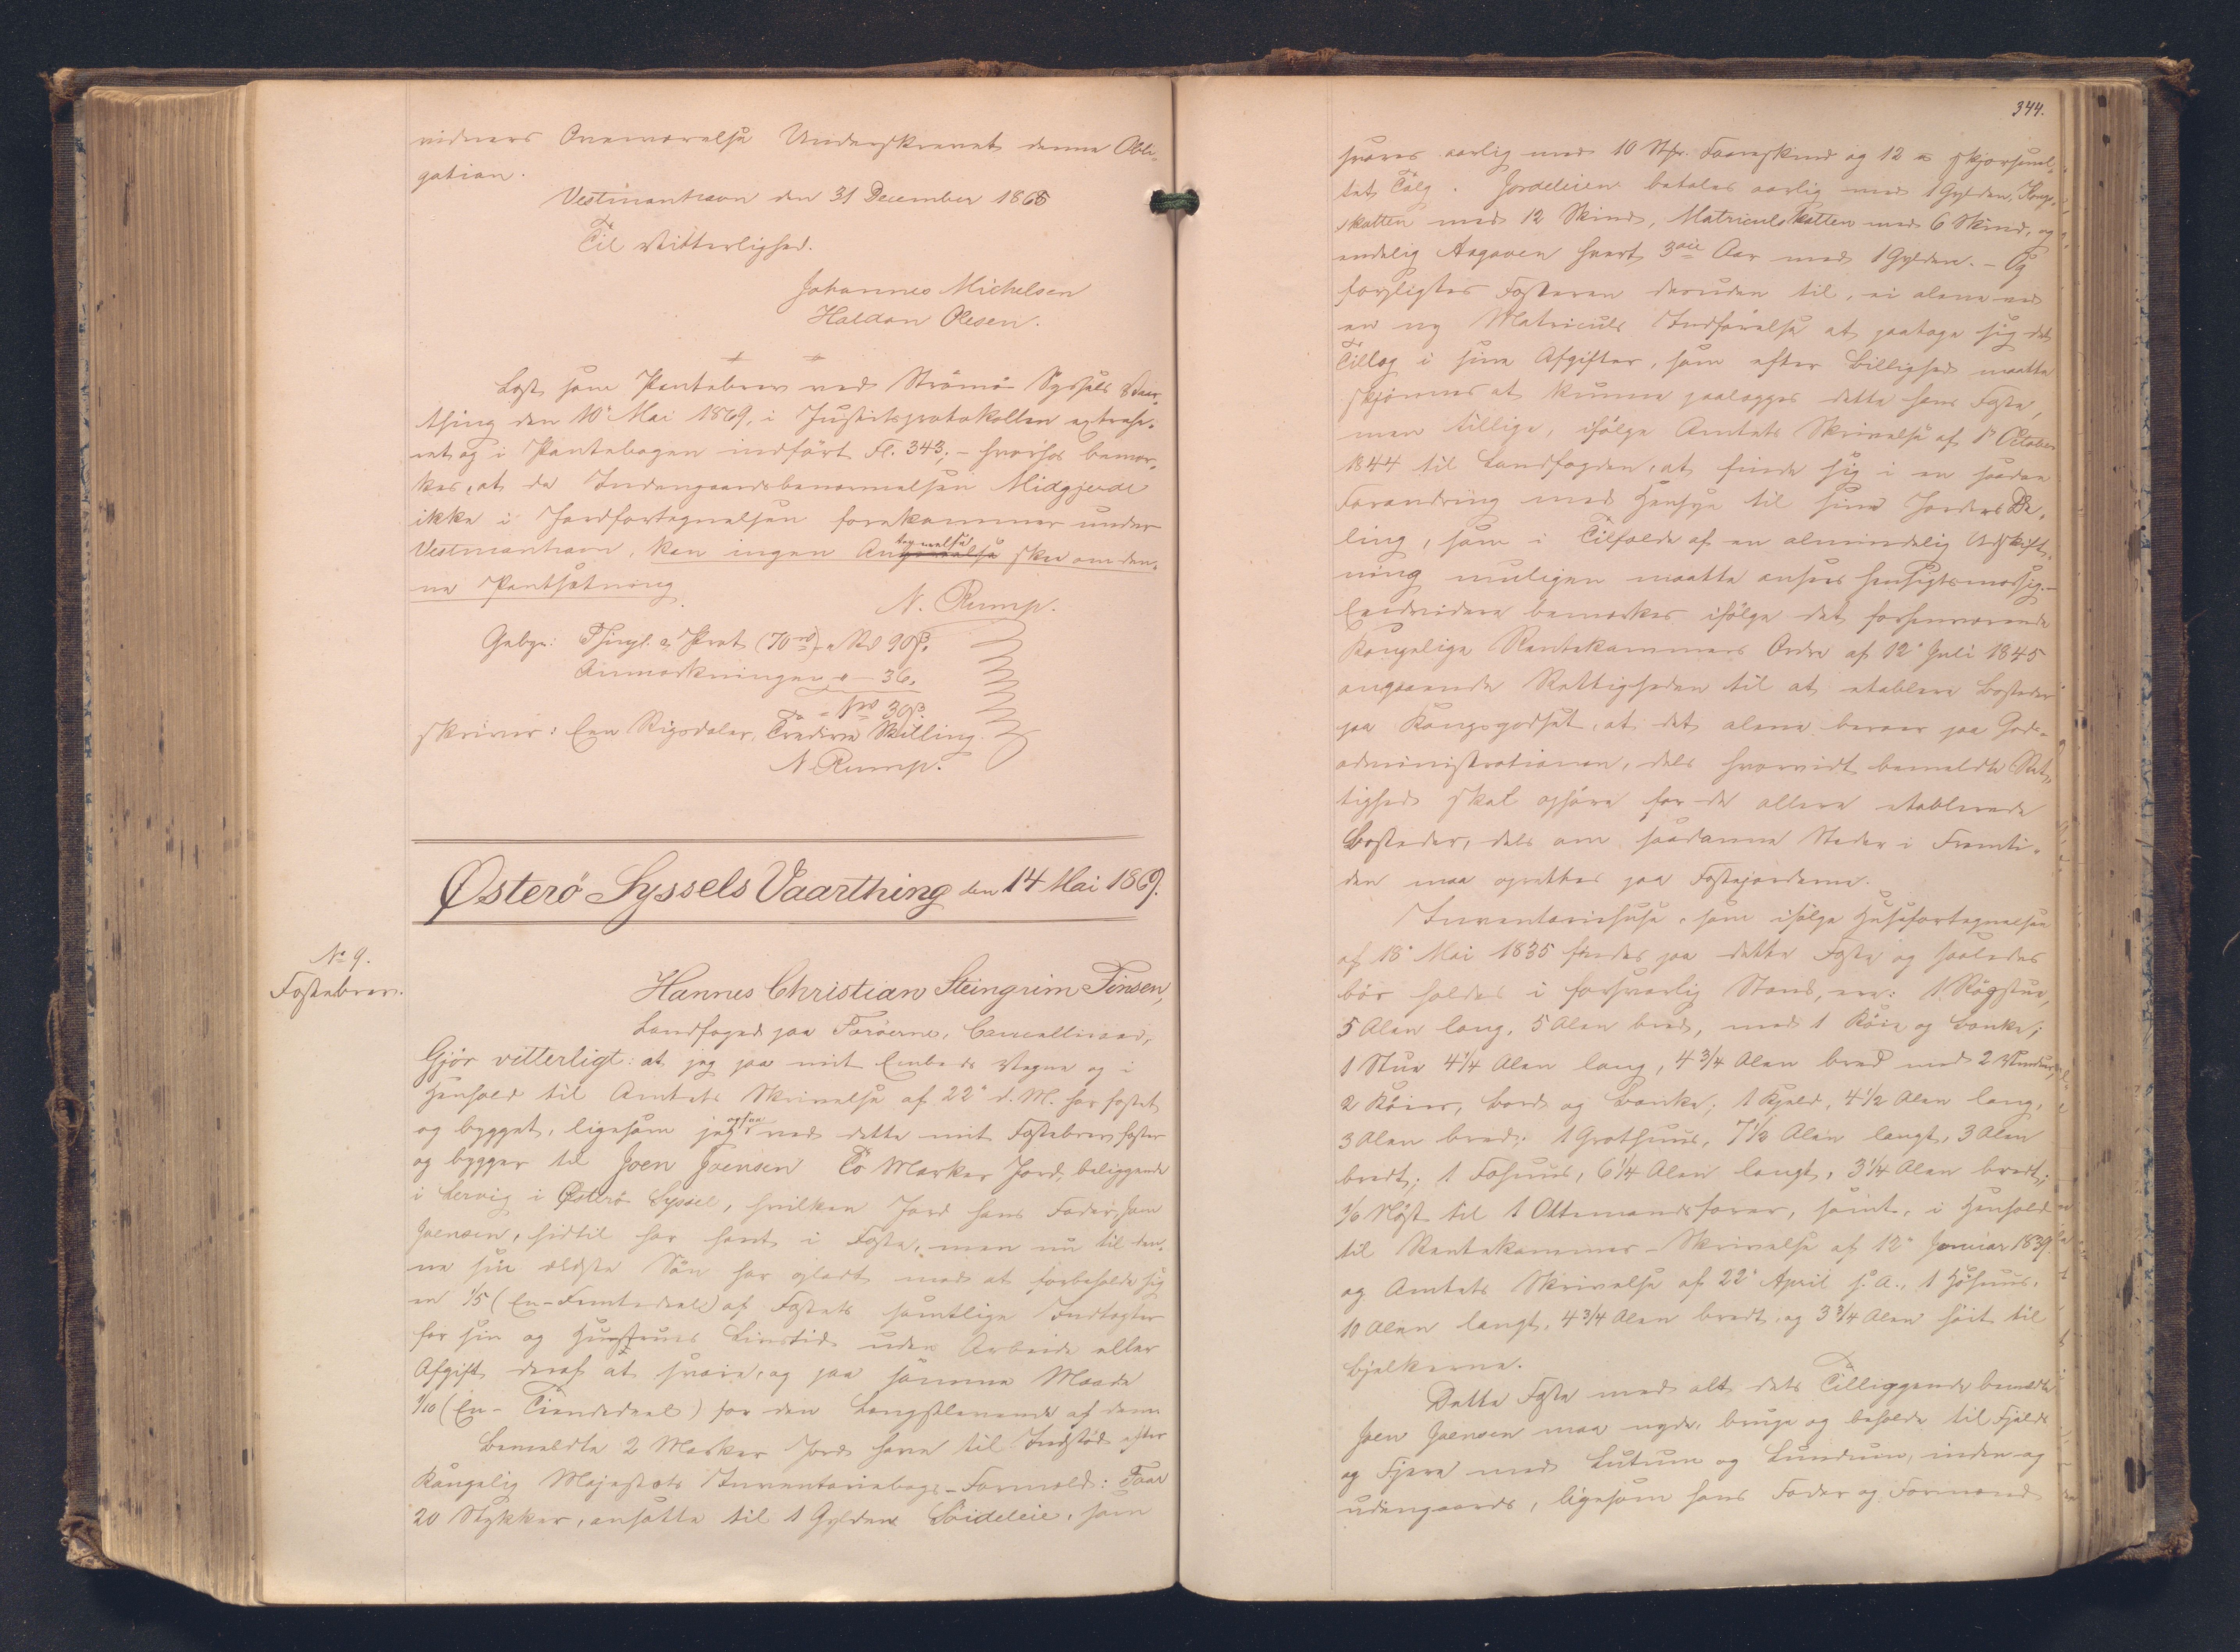 vidners Overværelse Underskrevet denne Obli-
gation.
Vestmanhavn den 31 December 1865
Til Vitterlighed.
Johannes Michelsen
Haldan Olesen.
Læst som Pantebrev ved Strömö Syssels Vaar-
thing den 10de Mai 1869, i Justitsprotokollen extrahe-
ret og i Pantebogen indført Fl. 343; - hvorhos bemær-
kes, at da Indengaardsbenævnelsen Midgjerde
ikke i Jordfortegnelsen forekommer under
Vestmanhavn, kan ingen Antegnelse ske om den-
ne Pantsætning.
N. Rump.
Gebyr: Thingl. & Prot (70 rd) - Rd 90 ß.
Anmærkningen " - 36.
= 1 rd 30 ß.
skriver: Een Rigsdaler, Tredive Skilling.
N. Rump.
Østerö Syssels Vaarthing den 14 Mai 1869.
No 9.
Fæstebrev.
Hannes Christian Steingrim Finsen,
Landfoged paa Færöerne, Cancelliraad,
Gjör vitterligt: at jeg paa mit Embeds Vegne og i
Henhold til Amtets Skrivelse af 22de d. M. har fæstet
og bygget, ligesom jeg ogsaa ved dette mit Fæstebrev fæster
og bygger til Joen Joensen To Marker Jord, beliggende
i Lervig i Österö Syssel, hvilken Jord hans Fader, Joen
Joensen, hidtil har havt i Fæste, men nu til den-
ne sin ældste Sön har opladt mod at forbeholde sig
en 1/5 (En-Femtedeel) af Fæstets samtlige Indtægter
for sin og Hustrues Livstid uden Arbeide eller
Afgift deraf at svare, og paa samme Maade
1/10 (En-Tiendedeel) for den Længstlevende af dem
Bemeldte 2 Marker Jord have til Indstöd efter
Kongelig Majestæts Inventariebogs-Formeld: Faar
20 Stykker, ansatte til 1 Gylden Söideleie, som
344.
svares aarlig med 10 Stkr. Faareskind og 12 ℔ skjørsmel-
tet Talg. Jordeleien betales aarlig med 1 Gylden, Konge-
skatten med 12 Skind, Matriculskatten med 6 Skind, og
endelig Aagaven hvert 3die Aar med 1 Gylden. - Og
forpligtes Fæsteren desuden til, ei alene ved
en ny Matriculs Indförelse at paatage sig det
Tillæg i sine Afgifter, som efter Billighed maatte
skjönnes at kunne paalægges dette hans Fæste,
men tillige, ifölge Amtets Skrivelse af 1ste October
1844 til Landfogden, at finde sig i en saadan
Forandring med Hensyn til sine Jorders De-
ling, som i Tilfælde af en almindelig Udskift-
ning muligen maatte ansees hensigtsmæssig. -
Endvidere bemærkes ifölge det forhenværende
Kongelige Rentekammers Ordre af 12te Juli 1845
angaaende Rettigheden til at etablere Bosteder
paa Kongsgodset, at det alene beroer paa Gods-
administrationen, dels hvorvidt bemeldte Ret-
tighed skal ophöre for de allerede etablerede
Bosteder, dels om saadanne Steder i Fremti-
den maa oprettes paa Fæstejorderne.
Inventariehuse, som ifölge Husefortegnelsen
af 18de Mai 1835 findes paa dette Fæste og saaledes
bör holdes i forsvarlig Stand, ere: 1 Rögstue,
5 Alen lang, 5 Alen bred, med 1 Köie og Bænke;
1 Stue 4 1/4 Alen lang, 4 3/4 Alen bred med 2 Vinduer,
2 Köier, Bord og Bænke; 1 Kjeld, 4 1/2 Alen lang,
3 Alen bred; 1 Grothuus, 7 1/2 Alen langt, 3 Alen
bredt; 1 Fæhuus, 6 1/4 Alen langt, 3 1/4 Alen bredt;
1/6 Nöst til 1 Ottemandsfarer, samt, i Henhold
til Rentekammer-Skrivelse af 12te Januar 1839
og Amtets Skrivelse af 22de April s. A., 1 Höhuus,
10 Alen langt, 4 3/4 Alen bredt og 3 3/4 Alen höit til
Bjelkerne.
Dette Fæste med alt dets Tilliggende bemeldte
Joen Joensen maa nyde, bruge og beholde til Fjelds
og Fjære med Lutum og Lundum, inden og
udengaards, ligesom hans Fader og Formænd